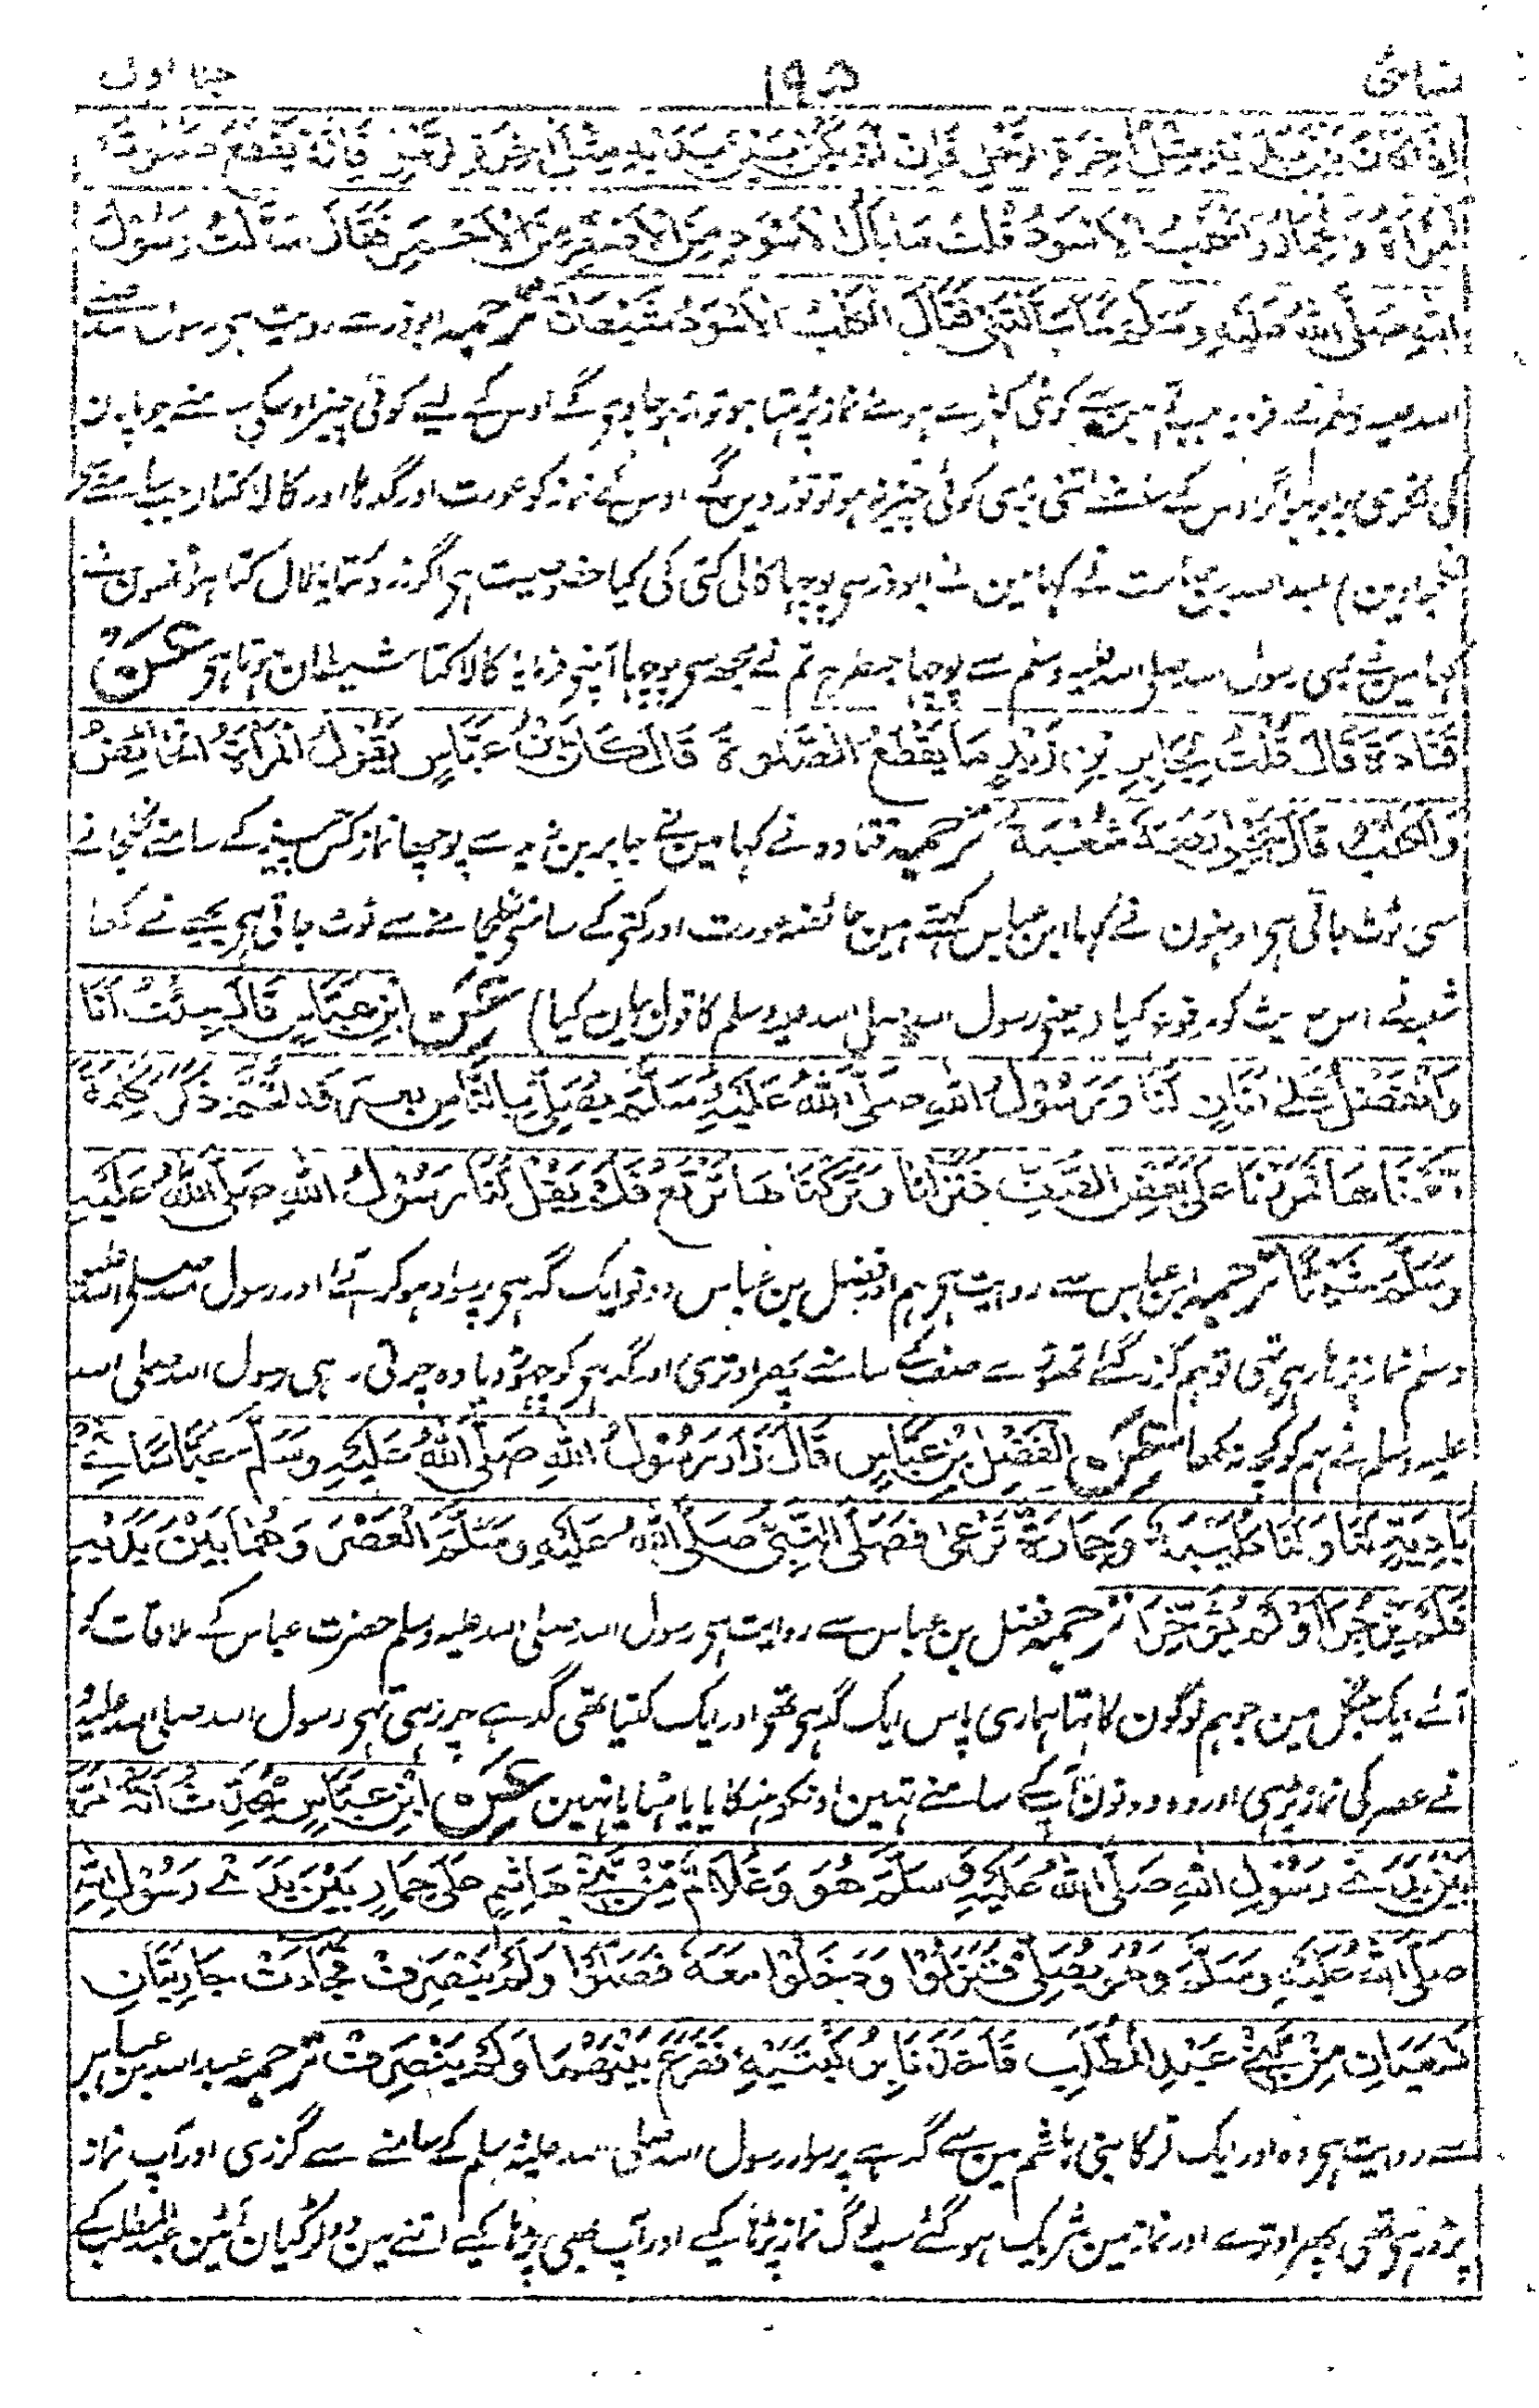 نسائی ۱۹۵ جلد اول
اذا كان بين يديه مثل اخرة الرحل فان لم يكن بين يديه مثل اخرة الرحل فانه يقطع صلوته
المرأة والحمار والكلب الاسود قلت ما بال الاسود من الاصفر من الاحمر فقال سألت رسول
الله صلى الله عليه وسلم كما سألتنی فقال الكلب الاسود شيطان ترجمہ ابوذر سے روایت ہی رسول اللہ صلے
اللہ علیہ وسلم نے فرمایا جب تم مین سے کوئی کھڑے ہوئے نماز پڑہتا ہو تو آڑ ہو جاویگی اوس کے لیے کوئی چیز اوسکی سامنے جو پالان
کی لکڑی برابر ہو اگر اوس کے سامنے اتنی بڑی کوئی چیز نہ ہو تو توڑ دین گے اوس کے نماز کو عورت اور گدہا اور کالا کتا (جب سامنے سے
نکل جاوین) عبد اللہ بن صامت نے کہا مین نے ابوذر سی پوچہا کالی کتی کی کیا خصوصیت ہی اگر زرد کتا یا لال کتا ہو اونہون نے
کہا مین نے بہی رسول اللہ صلی اللہ علیہ وسلم سے پوچہا جسطرح تم نے مجھ سی پوچہا آپنے فرمایا کالا کتا شیطان ہوتا ہی عن
قتادة قال قلت لجابر بن زيد ما يقطع الصلوة قال كان ابن عباس يقول المرأة الحائض
والكلب قال يحيى رفعه شعبة ترجمہ قتادہ نے کہا مین نے جابر بن زید سے پوچھا نماز کس چیز کے سامنے نکلجانے
سی ٹوٹ جاتی ہی اونہون نے کہا ابن عباس کہتے ہین حائضہ عورت اور کتی کے سامنے نکلجانے سے ٹوٹ جاتی ہی یحیے نے کہا
شعبہ نے اس حدیث کو مرفوع کیا (یعنی رسول اللہ صلی اللہ علیہ وسلم کا قول بیان کیا) عن ابن عباس قال جئت انا
والفضل على اتان لنا ورسول الله صلى الله عليه وسلم يصلى بالناس بعرفة ثم ذكر كلمة
معناها فمررنا على بعض الصف فنزلنا وتركناها ترتع فلم يقل لنا رسول الله صلى الله عليه
وسلم شيئا ترجمہ ابن عباس سے روایت ہی ہم اور فضل بن عباس دونو ایک گدہی پر سوار ہو کر آئے اور رسول اللہ صلی اللہ علیہ
وسلم نماز پڑہا رہی تہی تو ہم گزر گئے تھوڑے صف کے سامنے پھر اوتری اور گدہی کو چھوڑ دیا وہ چرتی رہی رسول اللہ صلی اللہ
علیہ وسلم نے ہم کو کچھ نہ کہا عن الفضل بن عباس قال زار رسول الله صلى الله عليه وسلم عباسا فى
بادية لنا ولنا كليبة وحمارة ترعى فصلى النبى صلى الله عليه وسلم العصر وهما بين يديه
فلم يزجرا ولم يؤخرا ترجمہ فضل بن عباس سے روایت ہی رسول اللہ صلی اللہ علیہ وسلم حضرت عباس کے ملاقات کو
آئے ایک جنگل مین جو ہم لوگون کا تہا ہماری پاس ایک گدہی تھی اور ایک کتیا تھی گدہے چر رہی تہی رسول اللہ صلی اللہ علیہ و
نے عصر کی نماز پڑہی اور وہ دونون آپکے سامنے تہین اونکو نہ ہنکایا یا ہٹایا نہین عن ابن عباس يحدث انه مر
بين يدى رسول الله صلى الله عليه وسلم هو وغلام من بنى هاشم على حمار بين يدى رسول الله
صلى الله عليه وسلم وهو يصلى فنزلوا ودخلوا معه فصلوا ولم ينصرف فجاءت جاريتان
تسعيان من بنى عبد المطلب فاخذتا بركبتيه ففرع بينهما ولم ينصرف ترجمہ عبد اللہ بن عباس
سے روایت ہی وہ اور ایک لڑکا بنی ہاشم مین سے گدہے پر سوار رسول اللہ صلی اللہ علیہ وسلم کے سامنے سے گزری اور آپ نماز
پڑہ رہی تھی پھر اوترے اور نماز مین شریک ہو گئے سب لوگ نماز پڑہا کیے اور آپ بھی پڑہا کیے اتنے مین دو لڑکیان آئین عبد المطلب کے